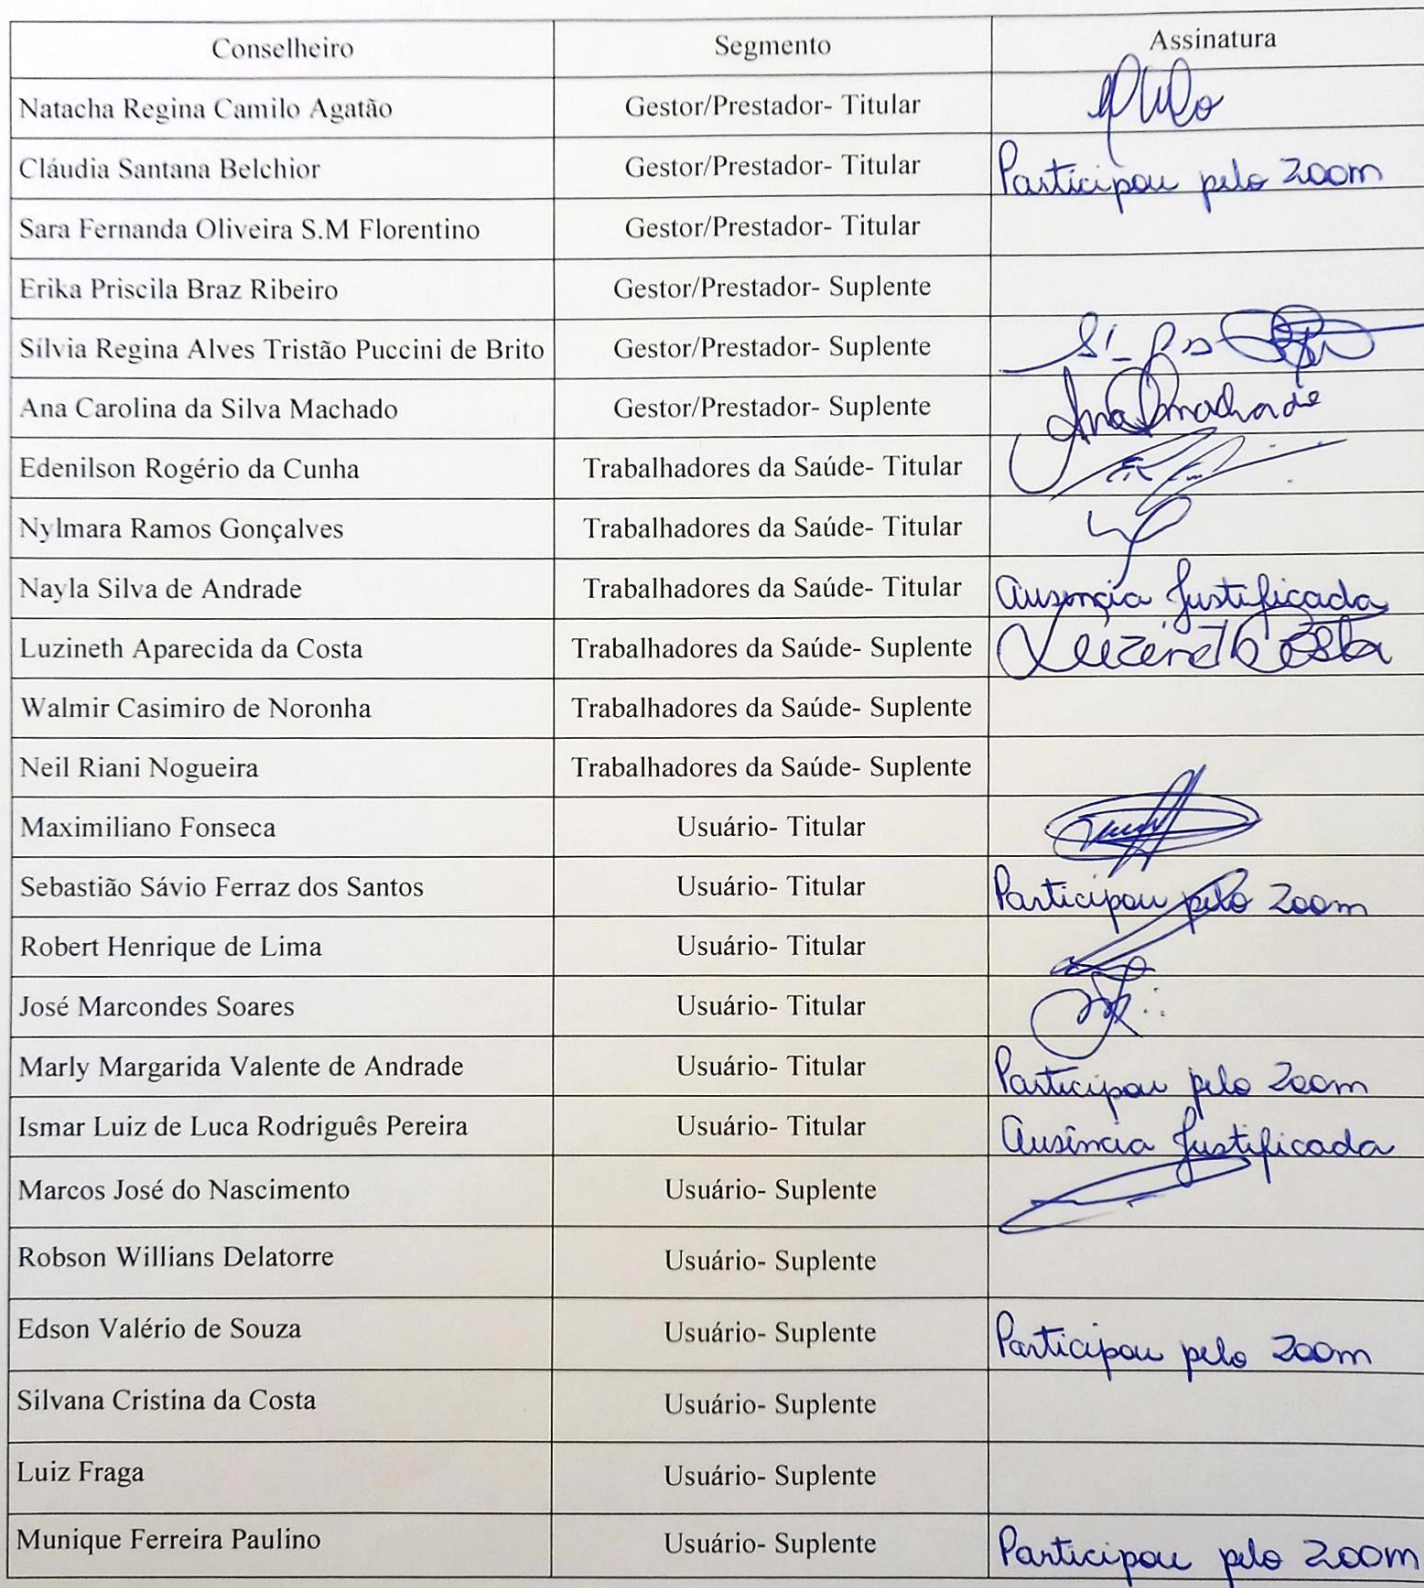 Conselheiro Segmento Assinatura
Natacha Regina Camilo Agatão Gestor/Prestador- Titular
Cláudia Santana Belchior Gestor/Prestador- Titular Participou pelo Zoom
Sara Fernanda Oliveira S.M Florentino Gestor/Prestador- Titular
Erika Priscila Braz Ribeiro Gestor/Prestador- Suplente
Sílvia Regina Alves Tristão Puccini de Brito Gestor/Prestador- Suplente
Ana Carolina da Silva Machado Gestor/Prestador- Suplente Ana Machado
Edenilson Rogério da Cunha Trabalhadores da Saúde- Titular
Nylmara Ramos Gonçalves Trabalhadores da Saúde- Titular
Nayla Silva de Andrade Trabalhadores da Saúde- Titular Ausência Justificada
Luzineth Aparecida da Costa Trabalhadores da Saúde- Suplente Luzineth Costa
Walmir Casimiro de Noronha Trabalhadores da Saúde- Suplente
Neil Riani Nogueira Trabalhadores da Saúde- Suplente
Maximiliano Fonseca Usuário- Titular
Sebastião Sávio Ferraz dos Santos Usuário- Titular Participou pelo Zoom
Robert Henrique de Lima Usuário- Titular
José Marcondes Soares Usuário- Titular
Marly Margarida Valente de Andrade Usuário- Titular Participou pelo Zoom
Ismar Luiz de Luca Rodriguês Pereira Usuário- Titular Ausência Justificada
Marcos José do Nascimento Usuário- Suplente
Robson Willians Delatorre Usuário- Suplente
Edson Valério de Souza Usuário- Suplente Participou pelo Zoom
Silvana Cristina da Costa Usuário- Suplente
Luiz Fraga Usuário- Suplente
Munique Ferreira Paulino Usuário- Suplente Participou pelo Zoom